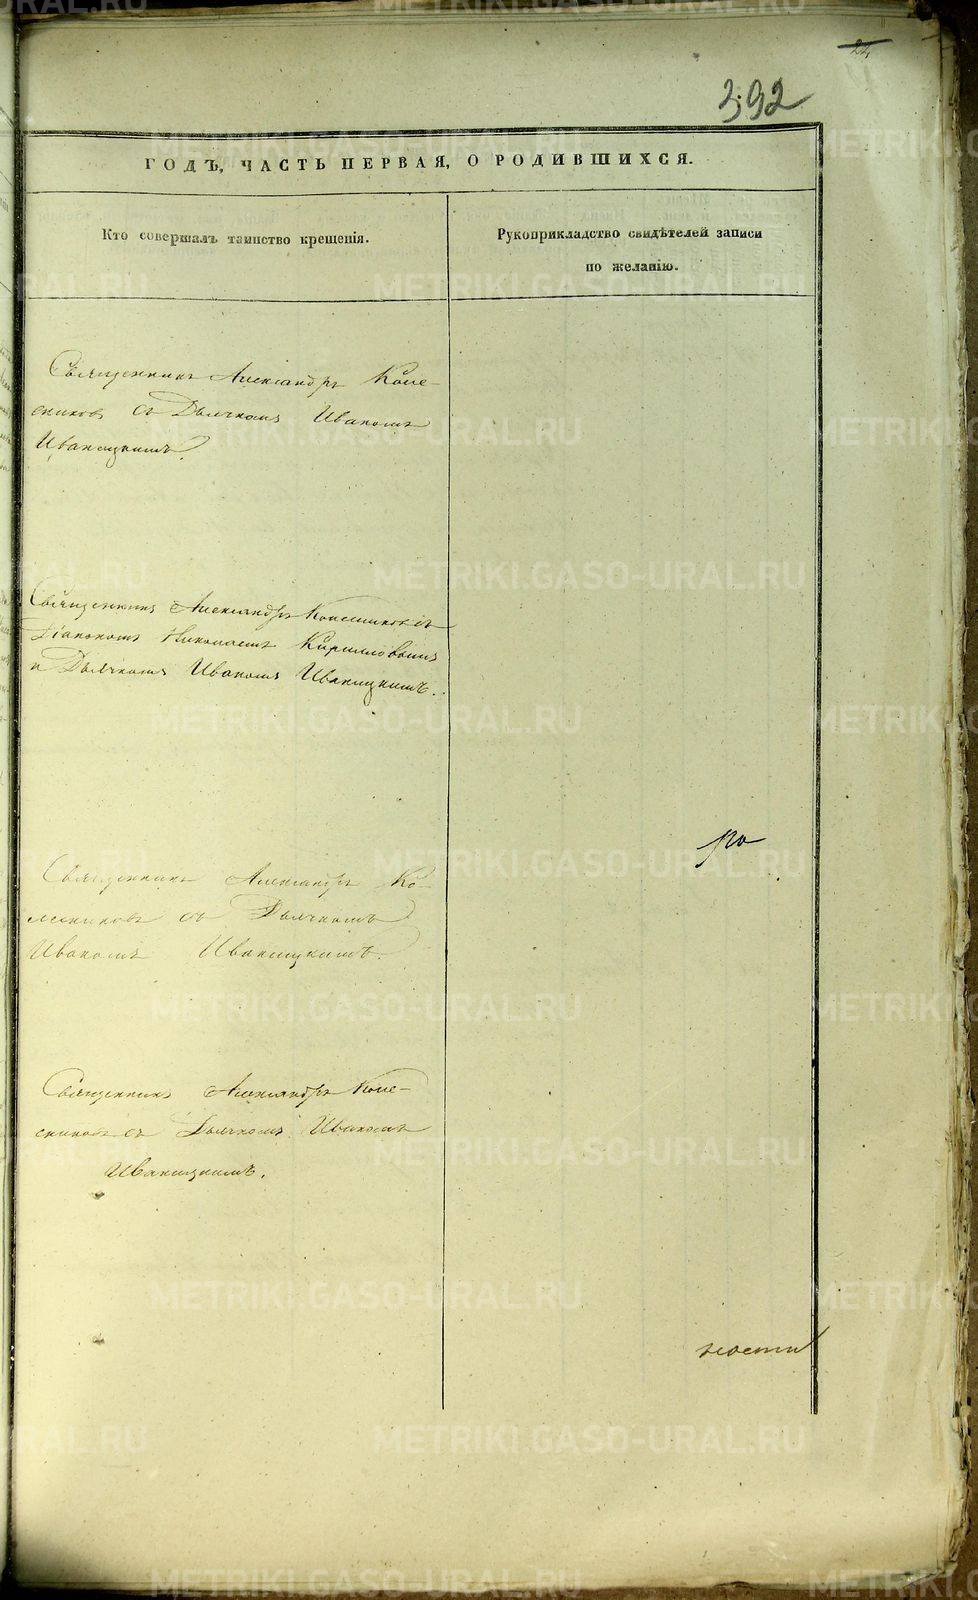 24
392
ГОДЪ, ЧАСТЬ ПЕРВАЯ, О РОДИВШИХСЯ.
Кто совершалъ таинство крещенія.
Рукоприкладство свидѣтелей записи
по желанію.
Священникъ Александръ Коле-
сниковъ съ Дьячкомъ Иваномъ
Иваницкимъ.
Священникъ Александръ Колесниковъ съ
Діакономъ Николаемъ Кирилловымъ
и Дьячкомъ Иваномъ Иваницкимъ.
Священникъ Александръ Ко-
лесниковъ съ Дьячкомъ
Иваномъ Иваницкимъ.
Священникъ Александръ Коле-
сниковъ съ Дьячкомъ Иваномъ
Иваницкимъ.
ности
METRIKI.GASO-URAL.RU